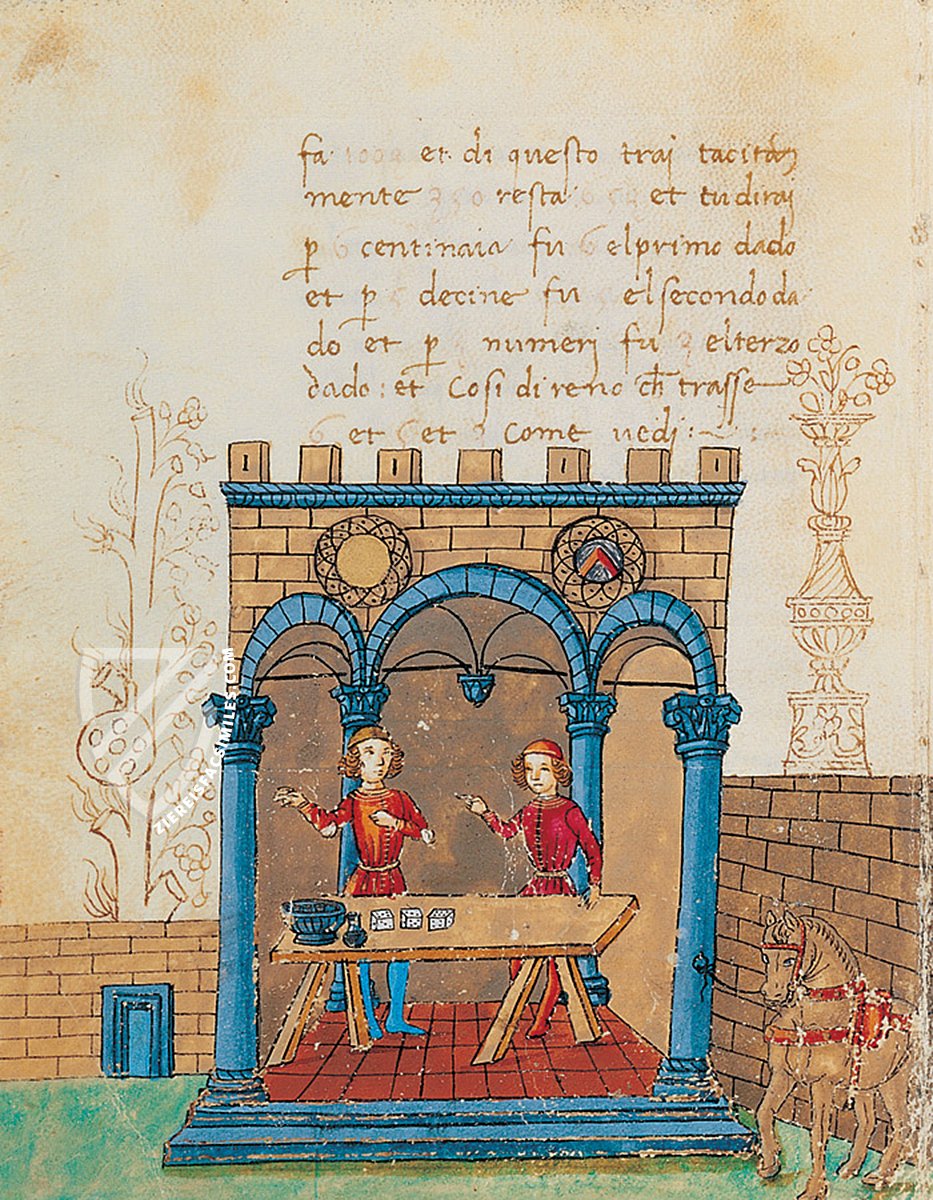 fa 1002 et di questo trai tacita
mente 350 resta 652 et tu dirai
p 6 centinaia fu 6 el primo dado
et p 5 decine fu 5 el secondo da
do et p numeri fu 2 el terzo
dado : et Cosi direno ch trasse
6 et 5 et 2 come vedi :~
ZIEREISFACSIMILES.COM